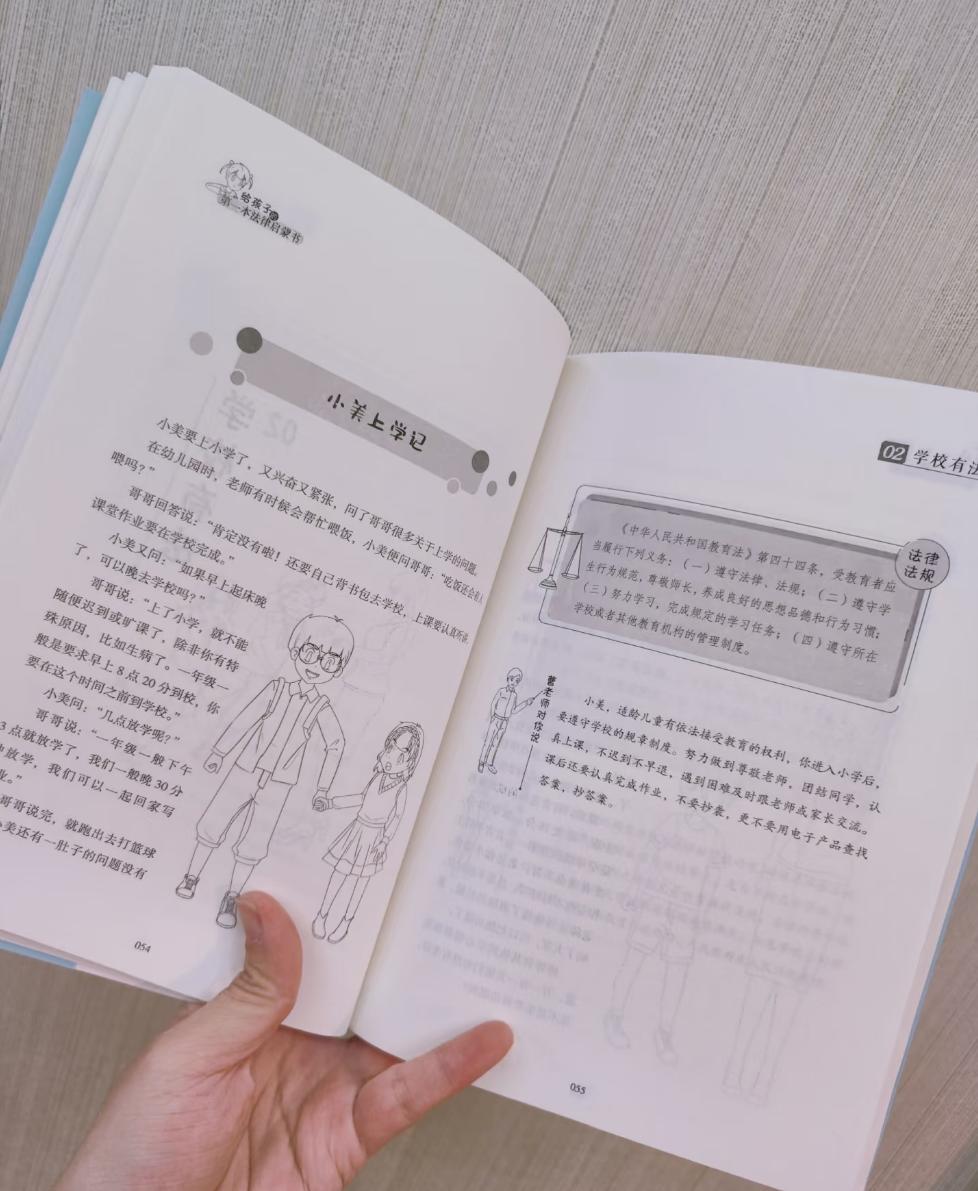 给孩子的
第一本法律启蒙书
小美上学记
小美要上小学了，又兴奋又紧张，问了哥哥很多关于上学的问题。
在幼儿园时，老师有时候会帮忙喂饭，小美便问哥哥：“吃饭还会有人
喂吗？”
哥哥回答说：“肯定没有啦！还要自己背书包去学校，上课要认真听讲，
课堂作业要在学校完成。”
小美又问：“如果早上起床晚
了，可以晚去学校吗？”
哥哥说：“上了小学，就不能
随便迟到或旷课了，除非你有特
殊原因，比如生病了。一年级一
般是要求早上8点20分到校，你
要在这个时间之前到学校。”
小美问：“几点放学呢？”
哥哥说：“一年级一般下午
3点就放学了，我们一般晚30分
放学，我们可以一起回家写
业。”
哥哥说完，就跑出去打篮球
小美还有一肚子的问题没有
054
02 学校有法
法律
法规
《中华人民共和国教育法》第四十四条，受教育者应
当履行下列义务：（一）遵守法律、法规；（二）遵守学
生行为规范，尊敬师长，养成良好的思想品德和行为习惯；
（三）努力学习，完成规定的学习任务；（四）遵守所在
学校或者其他教育机构的管理制度。
曹老师对你说
小美，适龄儿童有依法接受教育的权利，你进入小学后，
要遵守学校的规章制度。努力做到尊敬老师，团结同学，认
真上课，不迟到不早退，遇到困难及时跟老师或家长交流。
课后还要认真完成作业，不要抄袭，更不要用电子产品查找
答案，抄答案。
055